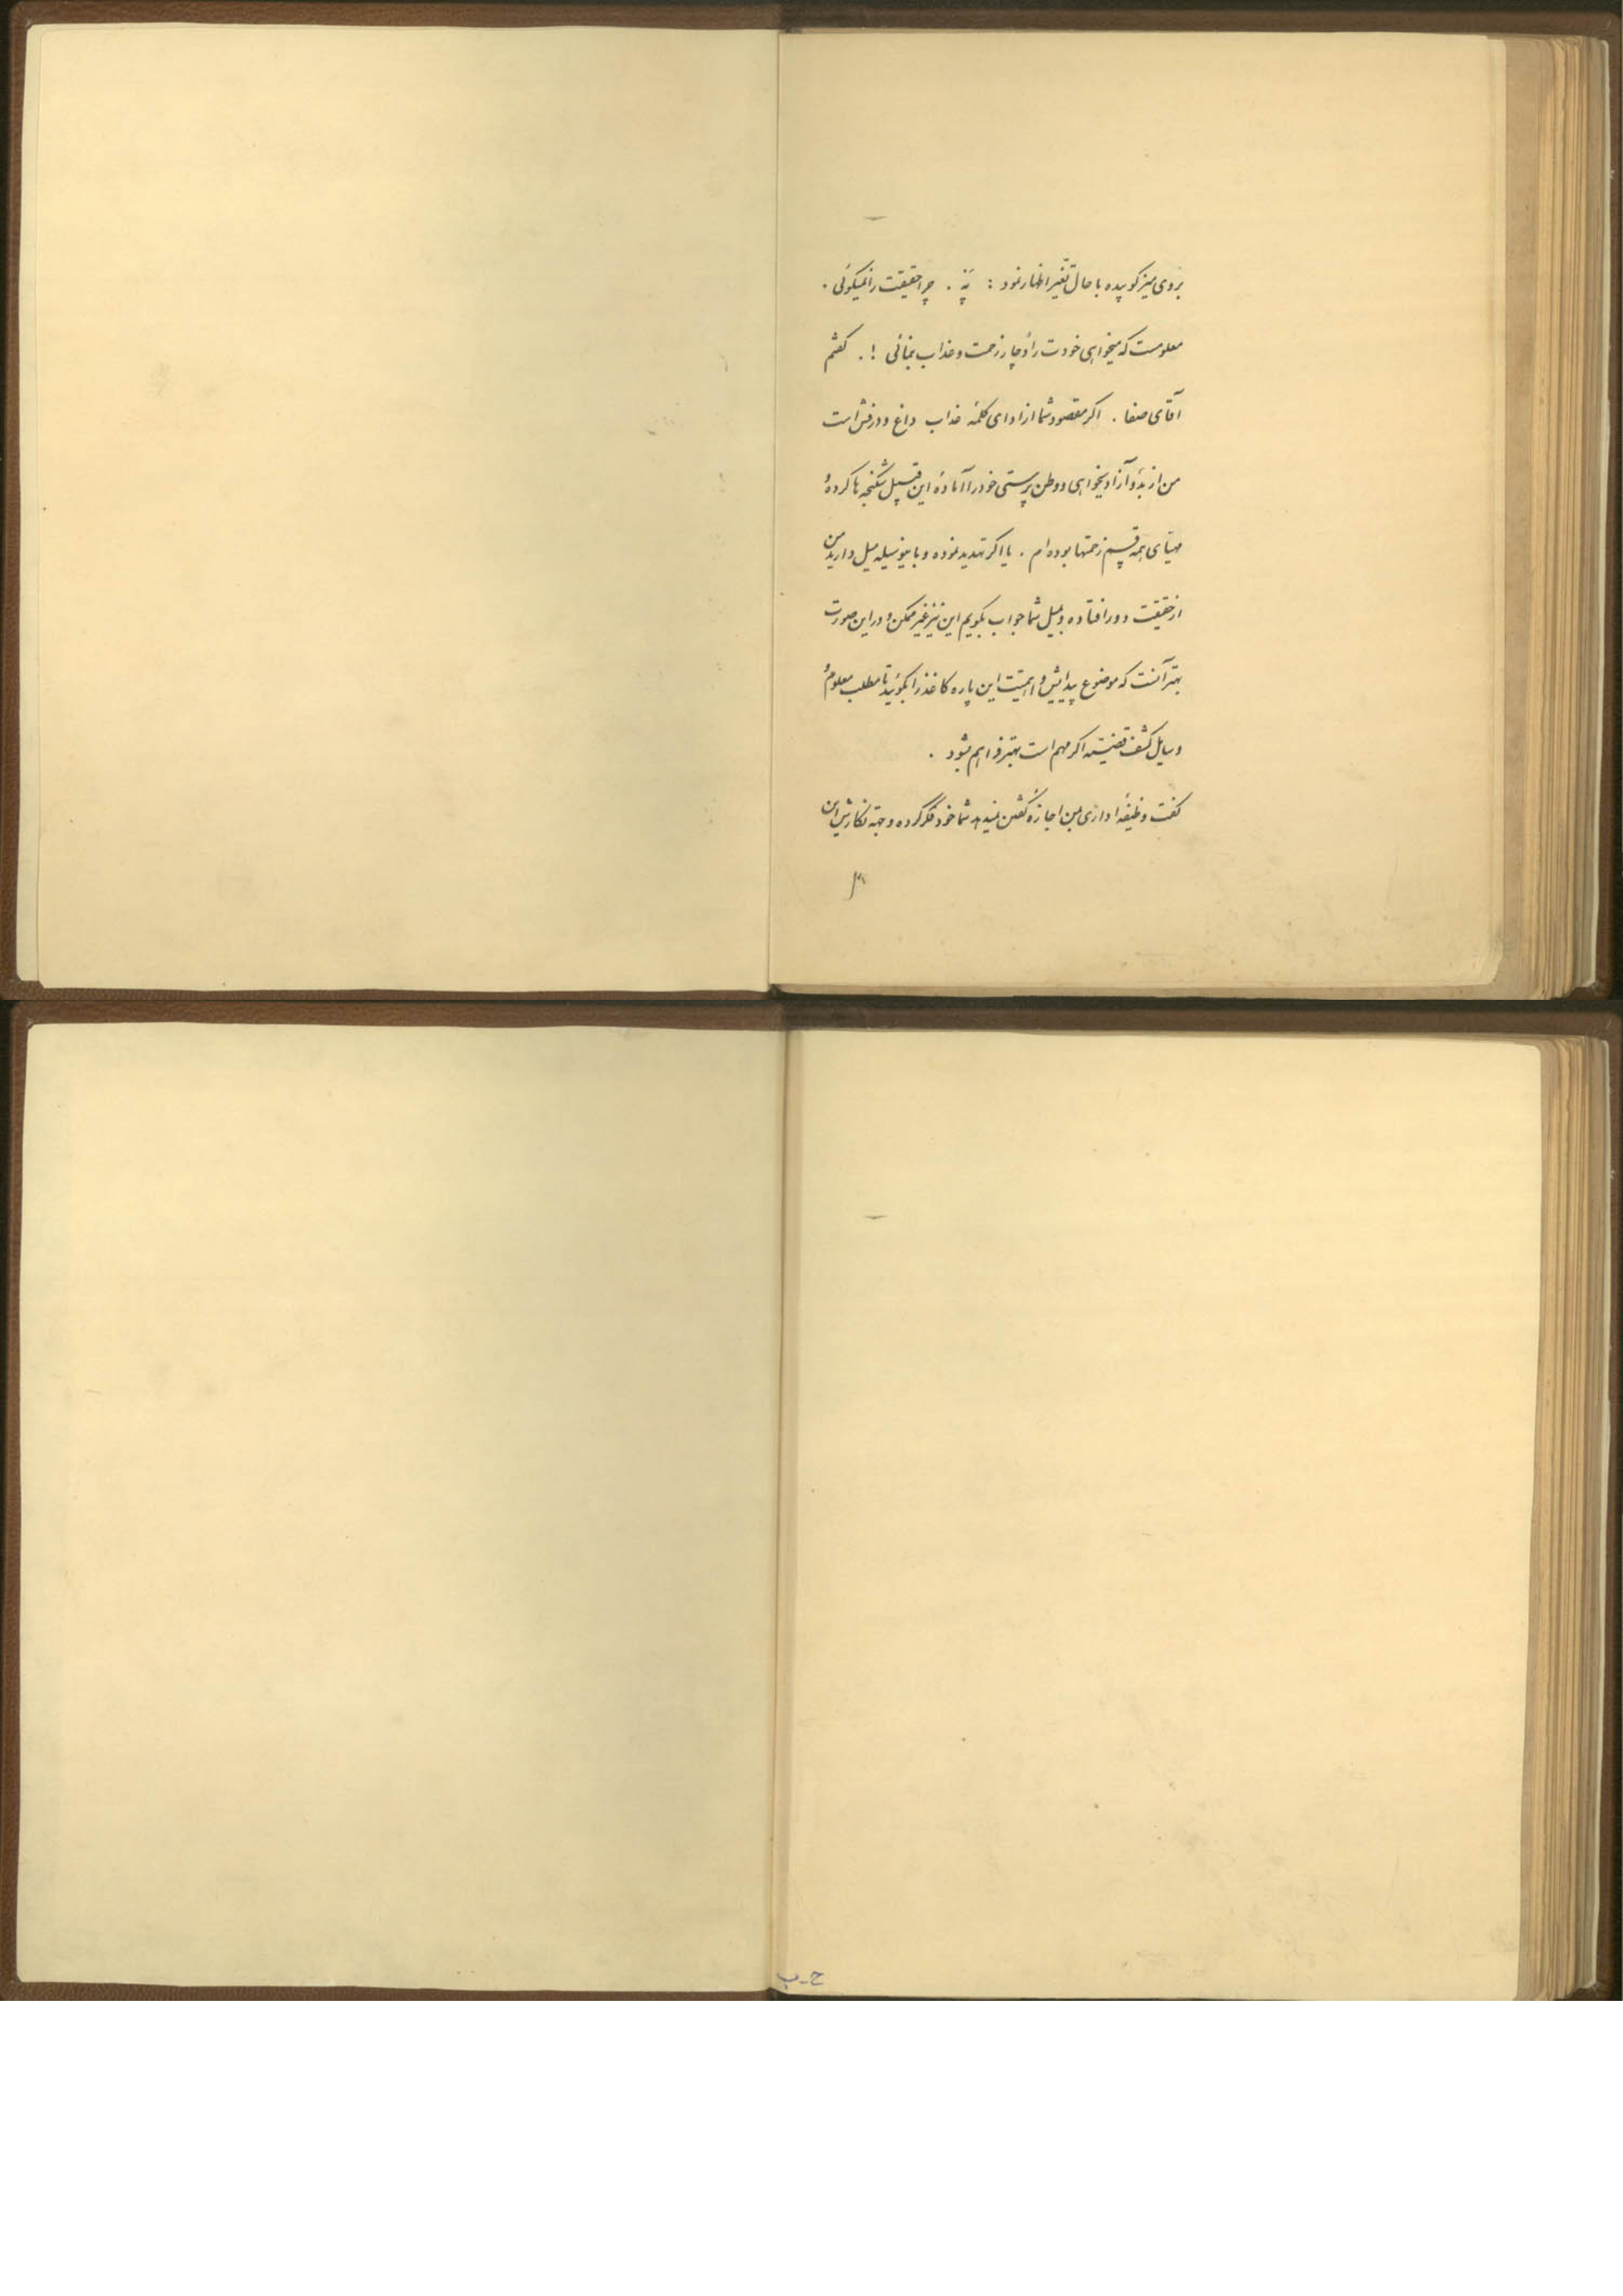 بروی میز کوبیده با حال تغیّر اظهار نمود : نَه . چرا حقیقت را نمیگوئی .
معلومست که میخواهی خودت را دچار زحمت و عذاب بنمائی !. گفتم
آقای صفا . اگر مقصود شما از ادای کلمهٔ عذاب داغ و درفش است
من از بدو آزادیخواهی و وطن پرستی خود را آمادهٔ این قبیل شکنجه ها کرده و
مهیّای همه قسم زحمتها بوده ام . یا اگر تهدید نموده و باینوسیله میل دارید من
از حقیقت دور افتاده و بمیل شما جواب بگویم این نیز غیر ممکن و در این صورت
بهتر آنست که موضوع پیدایش و اهمیّت این پاره کاغذ را بگوئید تا مطلب معلوم و
وسایل کشف قضیّه اگر مهم است بهتر فراهم شود .
گفت وظیفهٔ اداری بمن اجازهٔ گفتن نمیدهد شما خود فکر کرده و جهة نگارش این
۳۱
ح-ب